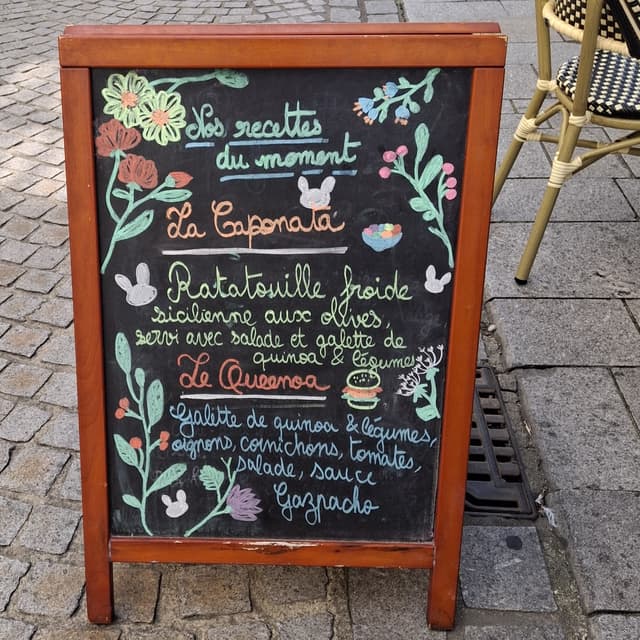 Nos recettes
du moment
La Caponata
Ratatouille froide
sicilienne aux olives,
servi avec salade et galette de
quinoa & légumes
Le Queenoa
Galitte de quinoa & légumes,
oignons, cornichons, tomates,
salade, sauce
Gazpacho